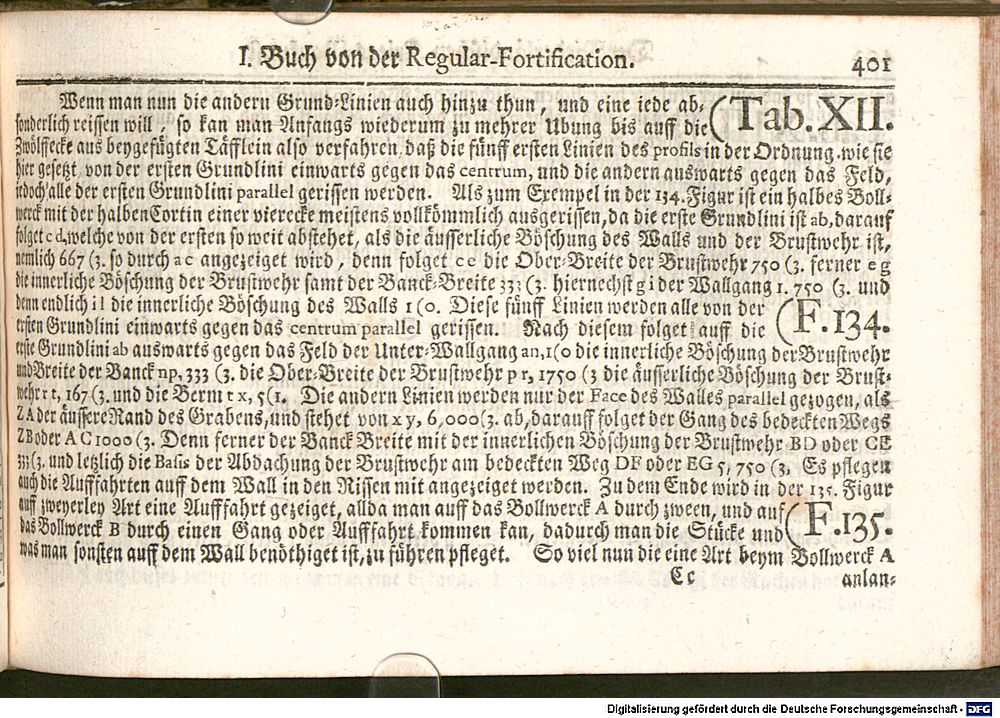 I. Buch von der Regular-Fortification. 401
Wenn man nun die andern Grund-Linien auch hinzu thun, und eine iede ab-
sonderlich reissen will, so kan man Anfangs wiederum zu mehrer Ubung bis auff die (Tab. XII.
Zwölffecke aus beygefügten Täfflein also verfahren, daß die fünff ersten Linien des profils in der Ordnung, wie sie
hier gesetzt, von der ersten Grundlini einwarts gegen das centrum, und die andern auswarts gegen das Feld,
jedoch alle der ersten Grundlini parallel gerissen werden. Als zum Exempel in der 134. Figur ist ein halbes Boll-
werck mit der halben Cortin einer vierecke meistens vollkömmlich ausgerissen, da die erste Grundlini ist ab, darauf
folget cd, welche von der ersten so weit abstehet, als die äusserliche Böschung des Walls und der Brustwehr ist,
nemlich 667 (3. so durch a c angezeiget wird, denn folget c e die Ober-Breite der Brustwehr 750 (3. ferner e g
die innerliche Böschung der Brustwehr samt der Banck-Breite 333 (3. hiernechst g i der Wallgang 1. 750 (3. und
denn endlich i l die innerliche Böschung des Walls 1 (0. Diese fünff Linien werden alle von der
ersten Grundlini einwarts gegen das centrum parallel gerissen. Nach diesem folget auff die (F. 134.
erste Grundlini ab auswarts gegen das Feld der Unter-Wallgang an, 1 (0 die innerliche Böschung der Brustwehr
und Breite der Banck np, 333 (3. die Ober-Breite der Brustwehr p r, 1750 (3 die äusserliche Böschung der Brust-
wehr r t, 167 (3. und die Berm t x, 5 (1. Die andern Linien werden nur der Face des Walles parallel gezogen, als
Z A der äussere Rand des Grabens, und stehet von x y, 6,000 (3. ab, darauf folget der Gang des bedeckten Wegs
Z B oder A C 1000 (3. Denn ferner der Banck Breite mit der innerlichen Böschung der Brustwehr BD oder CE
333 (3. und letzlich die Basis der Abdachung der Brustwehr am bedeckten Weg DF oder EG 5, 750 (3. Es pflegen
auch die Auffahrten auff dem Wall in den Rissen mit angezeiget werden. Zu dem Ende wird in der 135. Figur
auff zweyerley Art eine Auffahrt gezeiget, allda man auff das Bollwerck A durch zween, und auf
das Bollwerck B durch einen Gang oder Auffahrt kommen kan, dadurch man die Stücke und (F. 135.
was man sonsten auff dem Wall benöthiget ist, zu führen pfleget. So viel nun die eine Art beym Bollwerck A
Cc anlan-
Digitalisierung gefördert durch die Deutsche Forschungsgemeinschaft - DFG